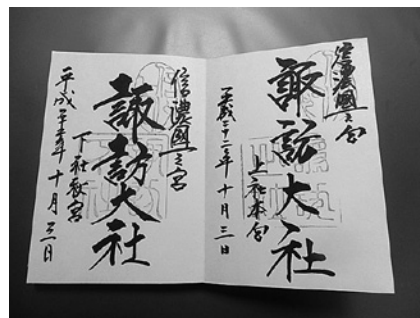 信濃國一之宮
諏訪大社
上社本宮
平成二十二年十月三日
信濃國一之宮
諏訪大社
下社秋宮
平成二十年十月日